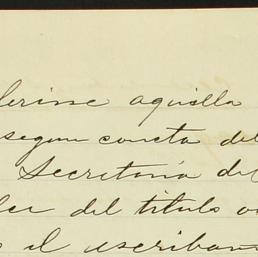 ferirse aquella
segun consta del
Secretaría del
del titulo
el escribano